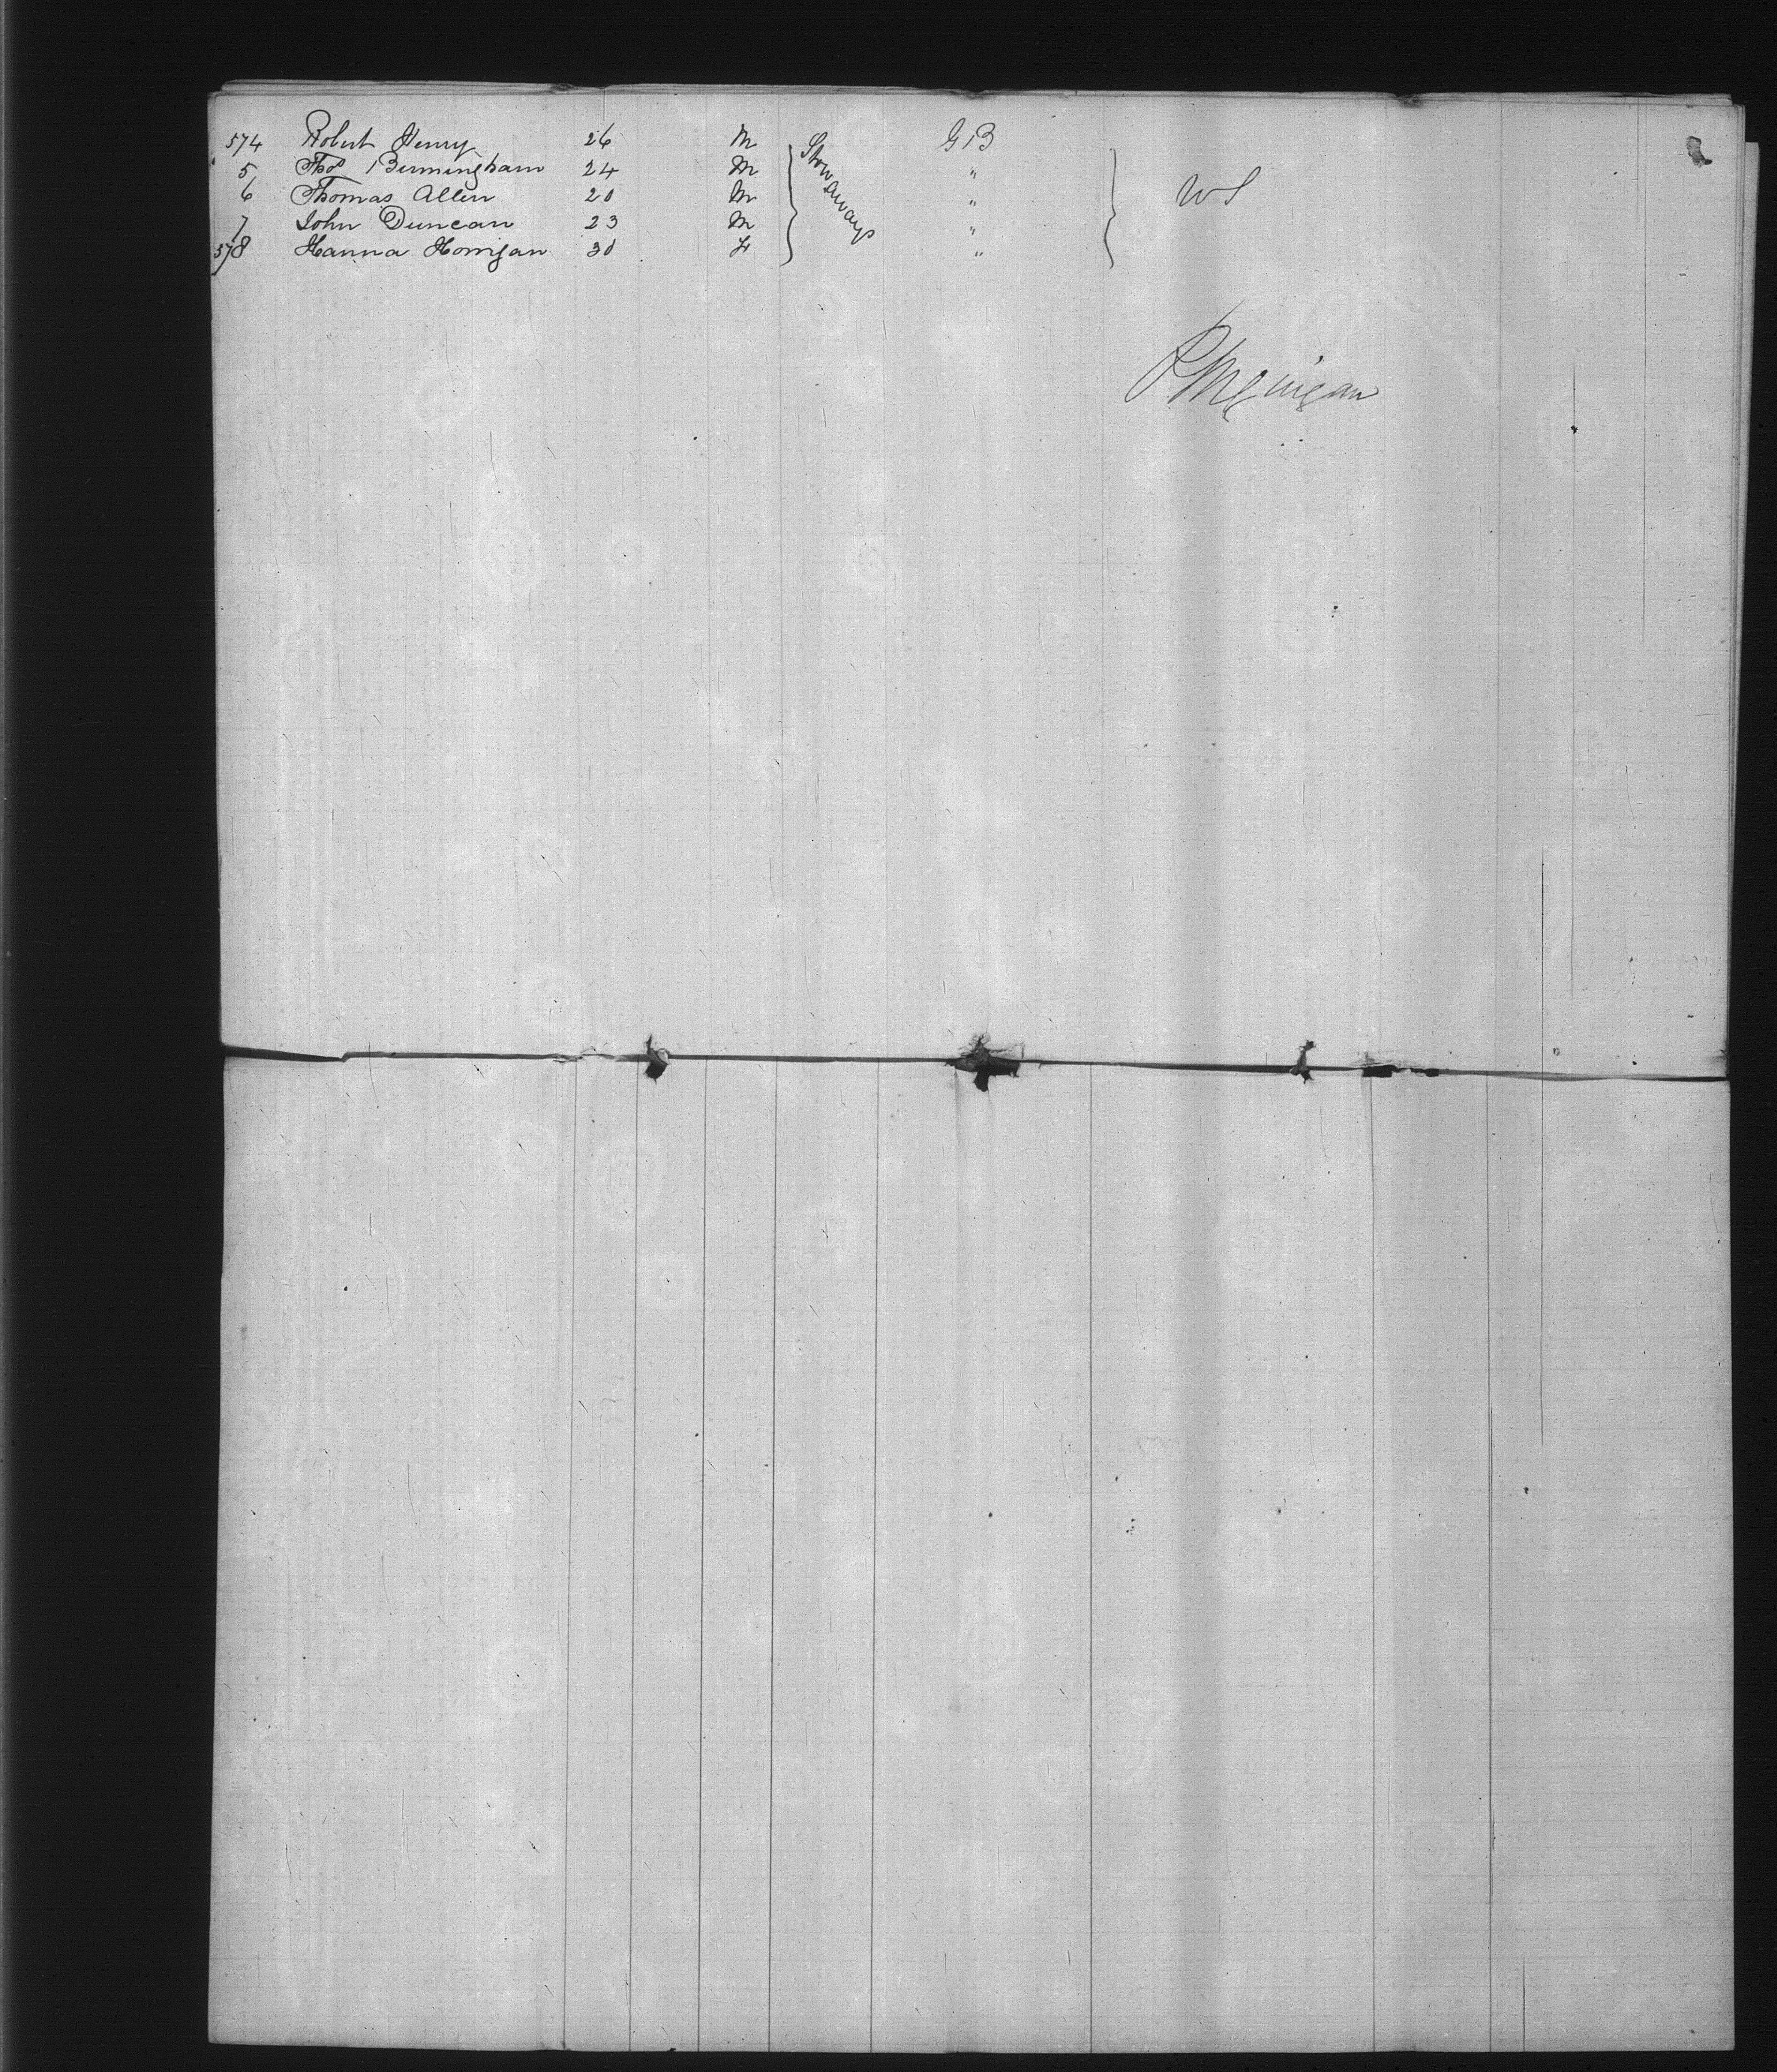 574 Robert Henry 26 M Stowaways GB US
5 Thos Birmingham 24 M "
6 Thomas Allen 20 M "
7 John Duncan 23 M "
578 Hanna Horrigan 30 F "